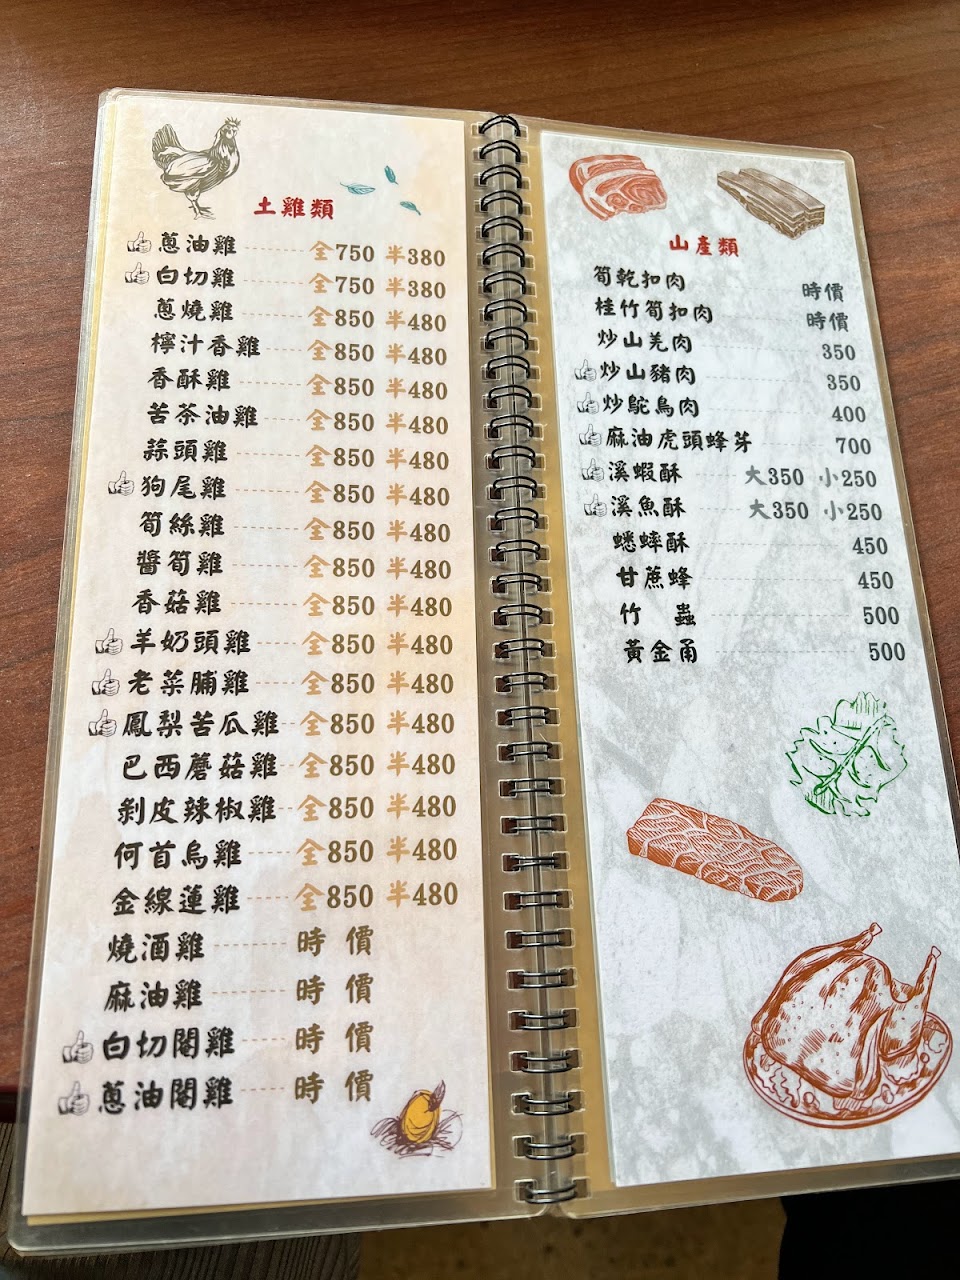 土雞類
蔥油雞 全750 半380
白切雞 全750 半380
蔥燒雞 全850 半480
檸汁香雞 全850 半480
香酥雞 全850 半480
苦茶油雞 全850 半480
蒜頭雞 全850 半480
狗尾雞 全850 半480
筍絲雞 全850 半480
醬筍雞 全850 半480
香菇雞 全850 半480
羊奶頭雞 全850 半480
老菜脯雞 全850 半480
鳳梨苦瓜雞 全850 半480
巴西蘑菇雞 全850 半480
剝皮辣椒雞 全850 半480
何首烏雞 全850 半480
金線蓮雞 全850 半480
燒酒雞 時價
麻油雞 時價
白切閹雞 時價
蔥油閹雞 時價
山產類
筍乾扣肉 時價
桂竹筍扣肉 時價
炒山羌肉 350
炒山豬肉 350
炒鴕鳥肉 400
麻油虎頭蜂芽 700
溪蝦酥 大350 小250
溪魚酥 大350 小250
蟋蟀酥 450
甘蔗蜂 450
竹蟲 500
黃金甬 500